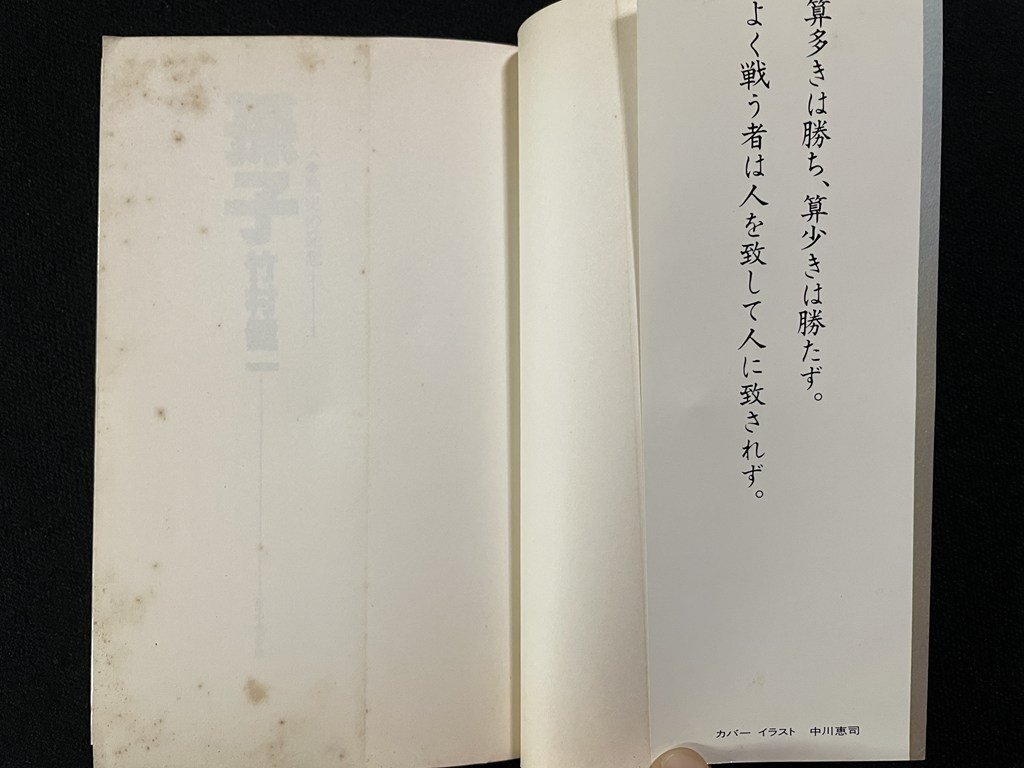 算多きは勝ち、算少きは勝たず。
よく戦う者は人を致して人に致されず。
カバー イラスト 中川恵司
孫子
竹村健一